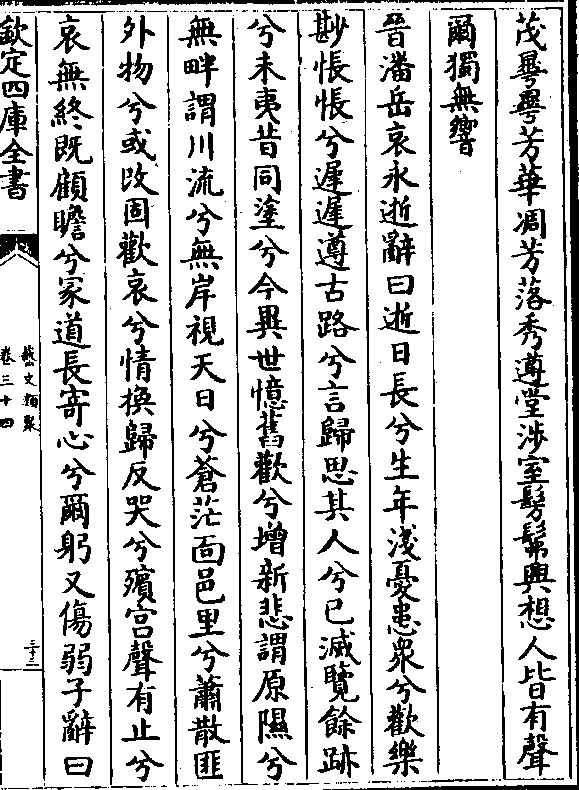 茂翼翼芳華凋芳落秀遵堂涉室髣髴興想人皆有聲
爾獨無響
晉潘岳哀永逝辭曰逝日長兮生年淺憂患衆兮歡樂
尠悵悵兮遲遲遵古路兮言歸思其人兮已滅覽餘跡
兮未夷昔同塗兮今異世憶舊歡兮增新悲謂原隰兮
無畔謂川流兮無岸視天日兮蒼茫面邑里兮蕭散匪
外物兮或改固歡哀兮情換歸反哭兮殯宫聲有止兮
哀無終既顧瞻兮家道長寄心兮爾躬又傷弱子辭曰
欽定四庫全書
藝文類聚
卷三十四
三十三